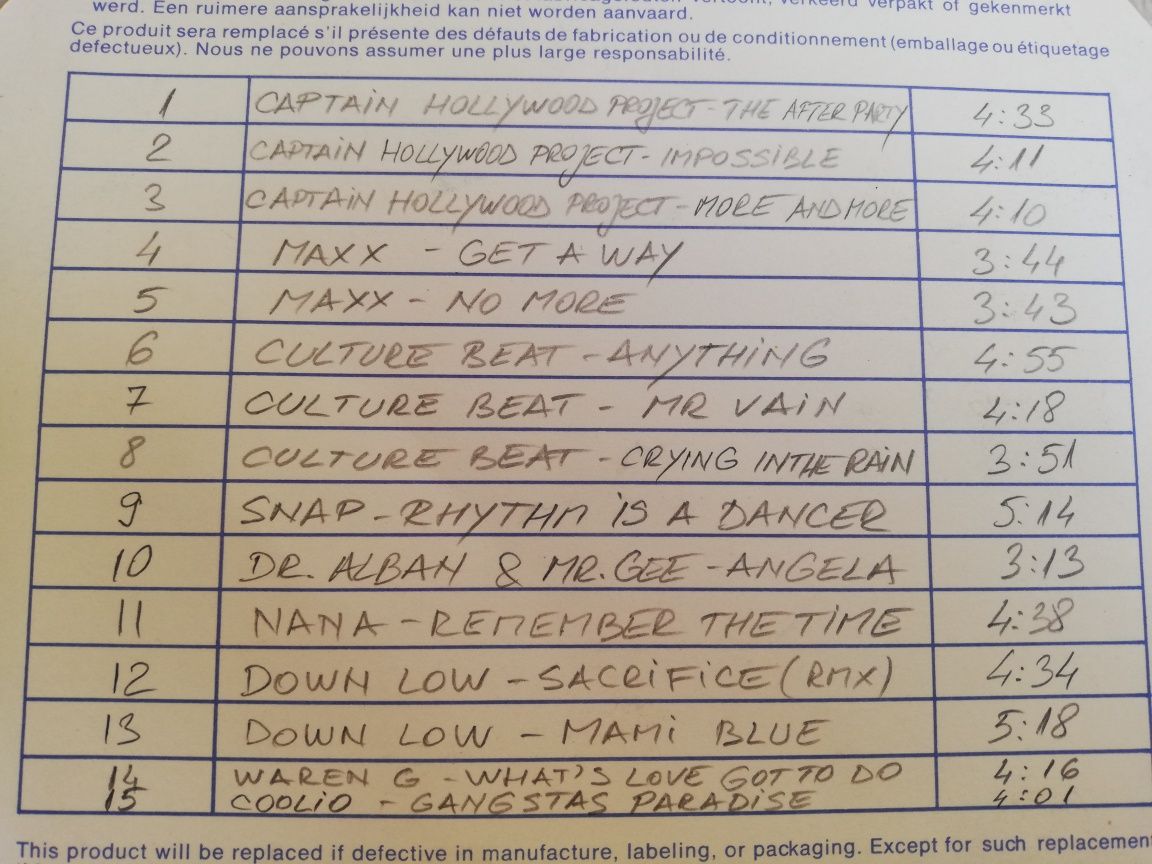 werd. Een ruimere aansprakelijkheid kan niet worden aanvaard. verkeerd verpakt of gekenmerkt
Ce produit sera remplacé s'il présente des défauts de fabrication ou de conditionnement (emballage ou étiquetage
defectueux). Nous ne pouvons assumer une plus large responsabilité.
1 CAPTAIN HOLLYWOOD PROJECT - THE AFTER PARTY 4:33
2 CAPTAIN HOLLYWOOD PROJECT - IMPOSSIBLE 4:11
3 CAPTAIN HOLLYWOOD PROJECT - MORE AND MORE 4:10
4 MAXX - GET A WAY 3:44
5 MAXX - NO MORE 3:43
6 CULTURE BEAT - ANYTHING 4:55
7 CULTURE BEAT - MR VAIN 4:18
8 CULTURE BEAT - CRYING IN THE RAIN 3:51
9 SNAP - RHYTHM IS A DANCER 5:14
10 DR. ALBAN & MR. GEE - ANGELA 3:13
11 NANA - REMEMBER THE TIME 4:38
12 DOWN LOW - SACRIFICE (RMX) 4:34
13 DOWN LOW - MAMI BLUE 5:18
14 WAREN G - WHAT'S LOVE GOT TO DO 4:16
15 COOLIO - GANGSTAS PARADISE 4:01
This product will be replaced if defective in manufacture, labeling, or packaging. Except for such replacement